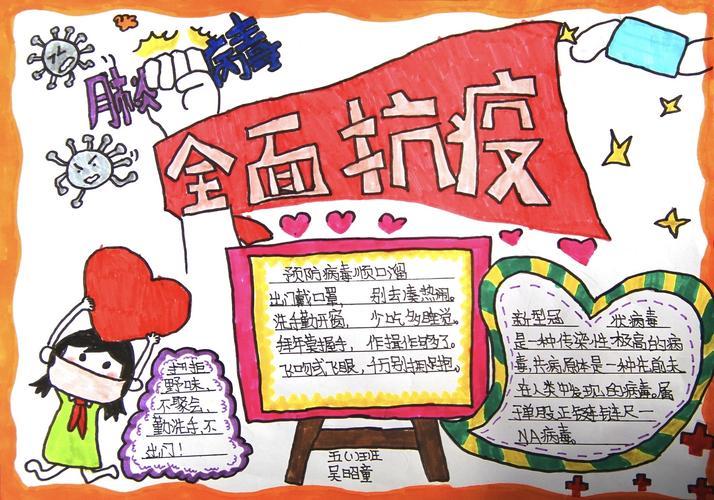 肺炎 病毒
全面抗疫
预防病毒顺口溜
出门戴口罩， 别去凑热闹。
洗手勤开窗， 少吃多睡觉。
拜年 握手， 作揖 了。
飞吻 飞 ，千万别拥抱。
野味、
不聚会、
勤洗手，不
出门！
新型冠 状病毒
是一种传染性极高的病
毒，其病原体是一种先前未
在人类中发现的病毒。属
于单股正链
NA病毒。
班
吴昭童